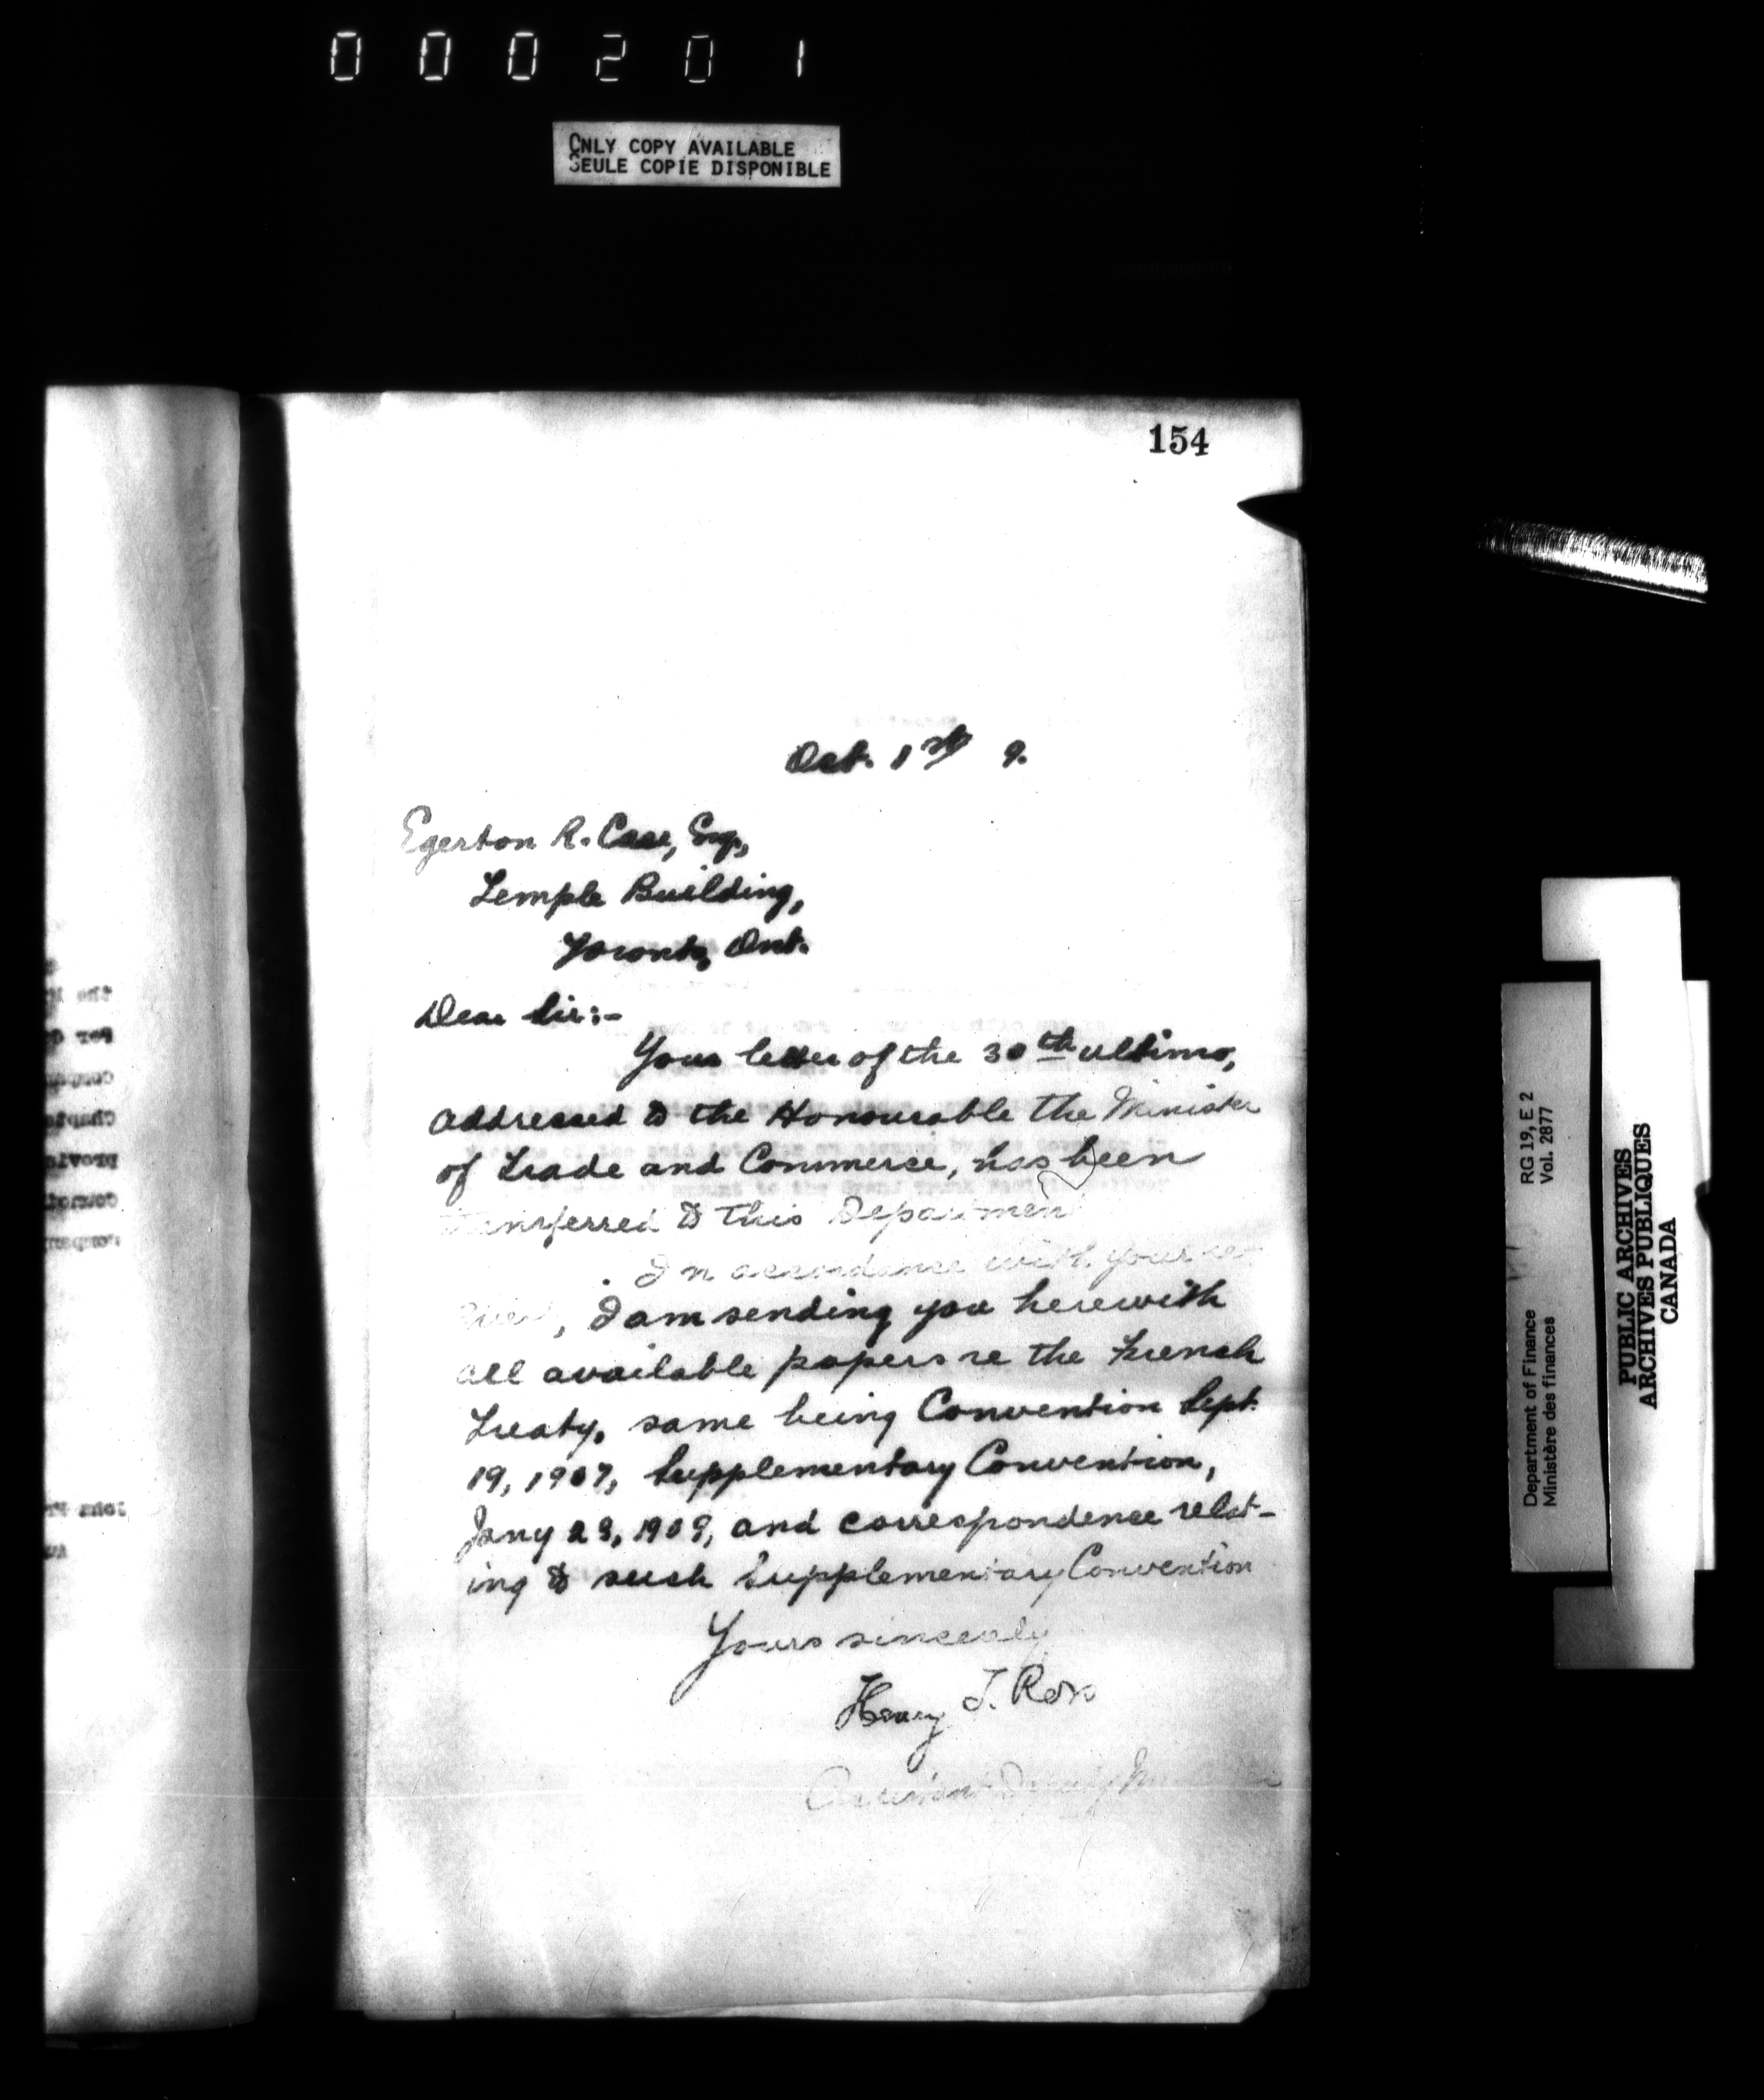 000201
ONLY COPY AVAILABLE
SEULE COPIE DISPONIBLE
154
Oct. 1st 9.
Egerton R. Case, Esq.,
Temple Building,
Toronto, Ont.
Dear Sir:-
Your letter of the 30th ultimo,
addressed to the Honourable the Minister
of Trade and Commerce, has been
transferred to this Department
In accordance with your re-
quest, I am sending you herewith
all available papers re the French
Treaty, same being Convention Sept.
19, 1907, Supplementary Convention,
Jany 23, 1909, and correspondence relat-
ing to such Supplementary Convention
Yours sincerely
Henry T. Ross
Assistant Deputy Minister
Department of Finance RG 19, E 2
Ministère des finances Vol. 2877
PUBLIC ARCHIVES
ARCHIVES PUBLIQUES
CANADA